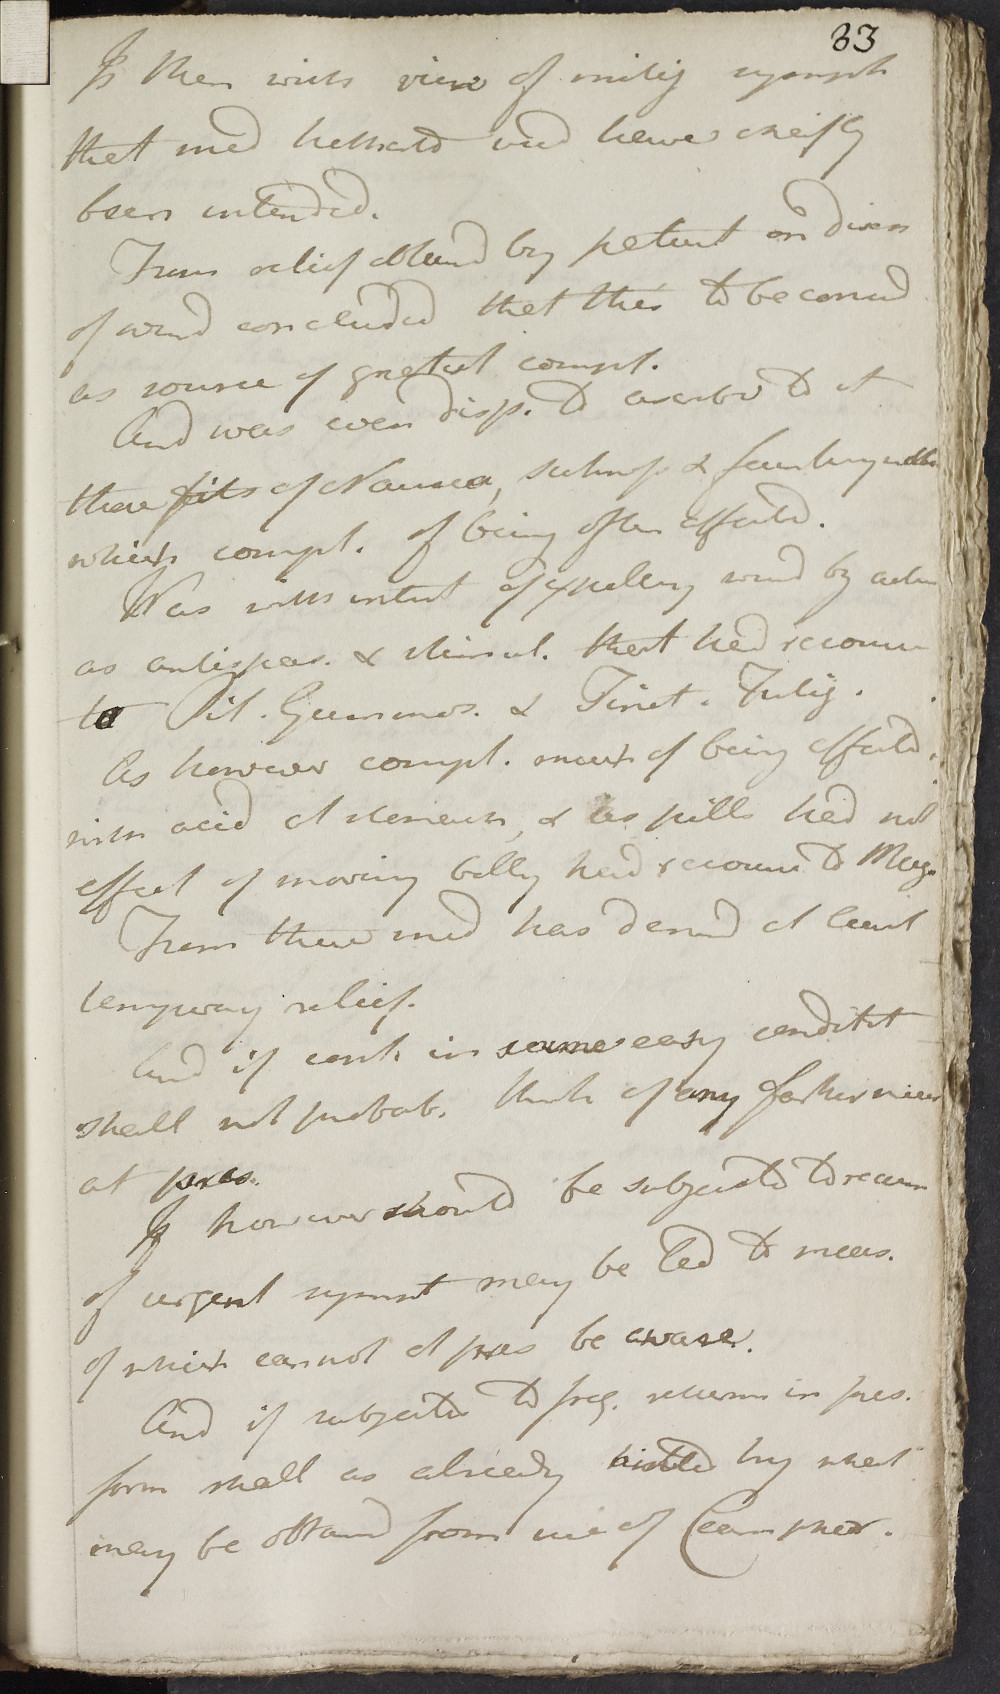 33
Is then with view of mitig sympt
that med hitherto used have chiefly
been intended.
From relief obtaind by patient on disch
of wind concluded that this to be consid
as source of greatest compl.
And was even disp. to ascribe to it
those fits of Nausea, & fainting
which compl. of being often affected.
Was with intent of expelling wind by actin
as antispas. & stimul. that had recourse
to Pil. Gummos. & Tinct. Fulig.
As however compl. much of being affected
with acid at stomach, & as pills had not
effect of moving belly had recourse to Mag.
From these med has derivd at least
temporary relief.
And if cont. in same easy condit
shall not probab. think of any farther
at pres.
If however should be subjected to recurr
of urgent sympt may be led to meas.
of which cannot at pres be aware.
And if subjected to freq. returns in pres.
form shall as already hinted try what
may be obtaind from use of Camphor.